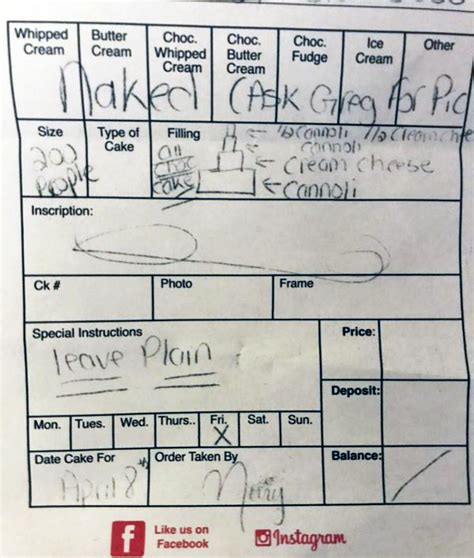 Whipped Cream Butter Cream Choc. Whipped Cream Choc. Butter Cream Choc. Fudge Ice Cream Other
Naked (Ask Greg for Pic
Size Type of Cake Filling
200 People
all choc cake
← 1/2 cannoli 1/2 cream chee
← cannoli
← cream cheese
← cannoli
Inscription:
Ck # Photo Frame
Special Instructions Price:
leave Plain
Deposit:
Mon. Tues. Wed. Thurs.. Fri. Sat. Sun.
X
Date Cake For Order Taken By Balance:
April 8th
Like us on Facebook
Instagram